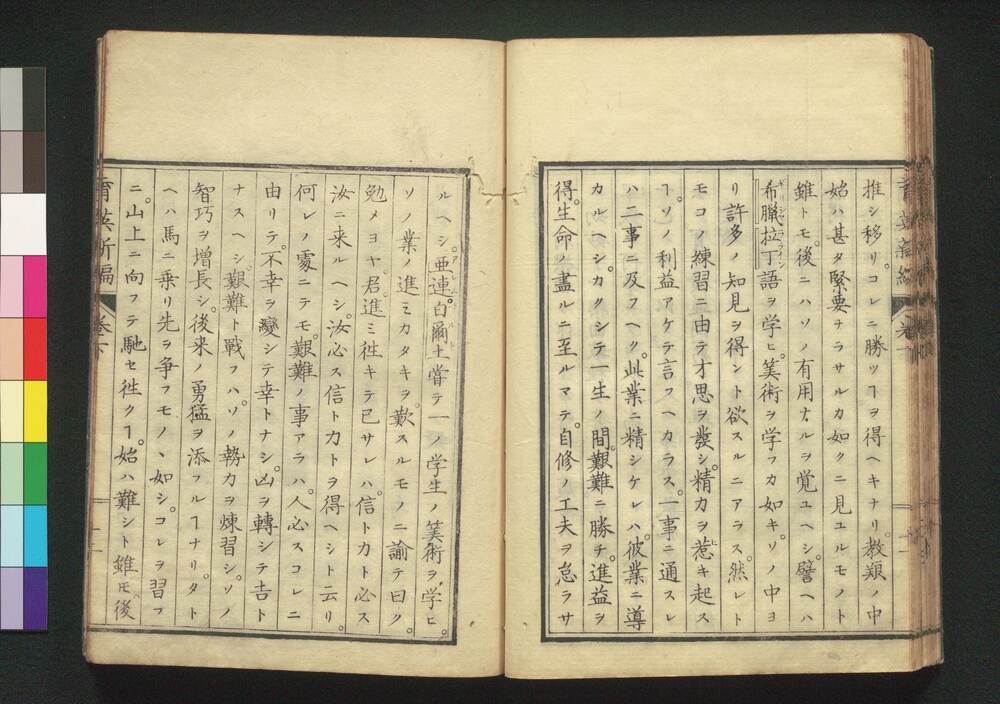 推シ移リ。コレニ勝ツヿヲ得ヘキナリ。教類ノ中
始ハ甚タ緊要ナラサルカ如クニ見ユルモノト
雖トモ。後ニハソノ有用ナルヲ覚ユヘシ。譬ヘハ
希臘拉丁語ヲ学ヒ。筭術ヲ学フカ如キ。ソノ中ヨ
リ許多ノ知見ヲ得ント欲スルニアラス。然レト
モコノ練習ニ由テ才思ヲ發シ。精力ヲ惹キ起ス
ヿ。ソノ利益アケテ言フヘカラス。一事ニ通スレ
ハ二事ニ及フヘク。此業ニ精シケレハ。彼業ニ導
カルヘシ。カクシテ一生ノ間。艱難ニ勝チ。進益ヲ
得。生命ノ盡ルニ至ルマテ。自修ノ工夫ヲ怠ラサ
ルヘシ。亜連白爾士嘗テ一ノ学生ノ筭術ヲ学ヒ。
ソノ業ノ進ミカタキヲ。歎スルモノニ諭テ曰ク。
勉メヨヤ。君。進ミ徃キテ已サレハ。信トカト必ス
汝ニ来ルヘシ。汝必ス信トカヲ得ヘシト云リ。
何レノ處ニテモ。艱難ノ事アラハ。人必スコレニ
由リテ。不幸ヲ變シテ幸トナシ。凶ヲ轉シテ吉ト
ナスヘシ。艱難ト戰フハ。ソノ勢力ヲ煉習シ。ソノ
智巧ヲ増長シ。後来ノ勇猛ヲ添フルヿナリ。タト
ヘハ馬ニ乗リ先ヲ争フモノヽ如シ。コレヲ習フ
ニ。山上ニ向フテ馳セ徃クヿ。始ハ難シト雖モ。後
育英新編 巻之下